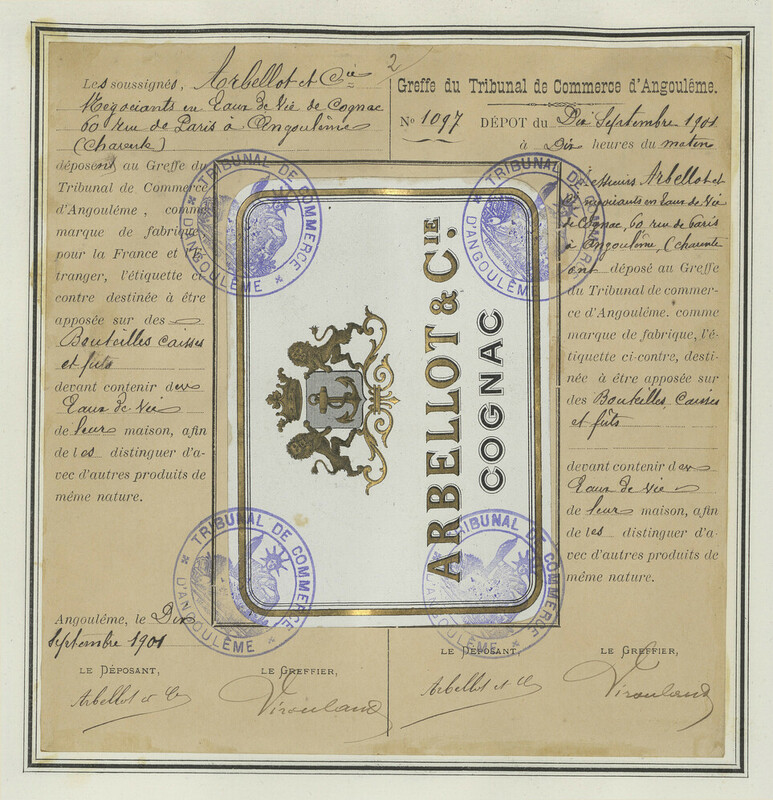 2
Les soussignés, Arbellot et Cie
Négociants en Eaux de Vie de Cognac
60 rue de Paris à Angoulême
(Charente)
déposent au Greffe du
Tribunal de Commerce
d'Angoulême, comme
marque de fabrique
pour la France et l'é
tranger, l'étiquette ci
contre destinée à être
apposée sur des
Bouteilles caisses
et fûts
devant contenir des
Eaux de Vie
de leur maison, afin
de les distinguer d'a-
vec d'autres produits de
même nature.
Angoulême, le Dix
Septembre 1901
LE DÉPOSANT,
LE GREFFIER,
Arbellot et Cie
ARBELLOT & CIE.
COGNAC
TRIBUNAL DE COMMERCE
D'ANGOULÊME
TRIBUNAL DE COMMERCE
D'ANGOULÊME
TRIBUNAL DE COMMERCE
D'ANGOULÊME
TRIBUNAL DE COMMERCE
D'ANGOULÊME
Greffe du Tribunal de Commerce d'Angoulême.
No 1097 DÉPOT du Dix Septembre 1901
à Dix heures du matin
Messieurs Arbellot et
Cie négociants en Eaux de Vie
de Cognac, 60, rue de Paris
à Angoulême, (Charente
ont déposé au Greffe
du Tribunal de commer-
ce d'Angoulême. comme
marque de fabrique, l'é-
tiquette ci-contre, desti-
née à être apposée sur
des Bouteilles, Caisses
et fûts
devant contenir des
Eaux de vie
de leur maison, afin
de les distinguer d'a-
vec d'autres produits de
même nature.
LE DÉPOSANT,
LE GREFFIER,
Arbellot et Cie